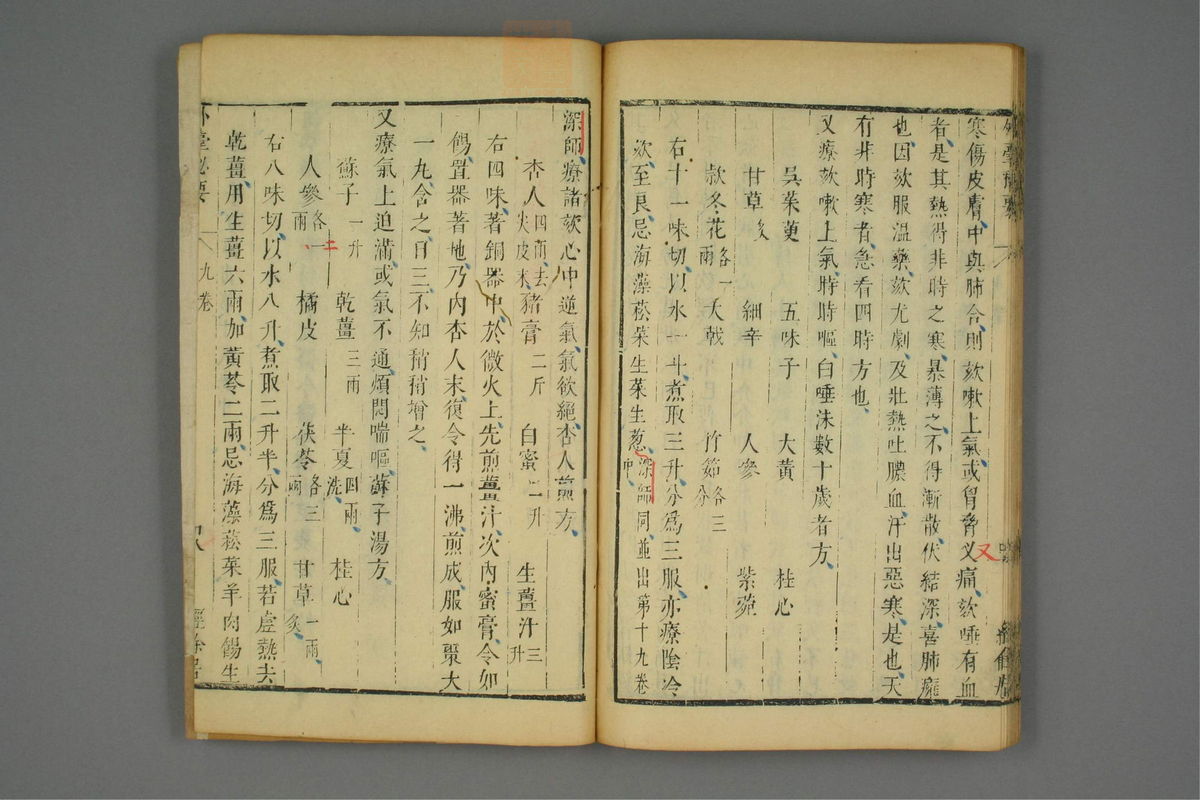 外臺秘要
寒傷皮膚、中與肺合、則欬嗽上氣、或胷脅叉痛、欬唾有血
又
者是其熱得非時之寒、暴薄之、不得漸散、伏結深、喜肺癰
也、因欬服溫藥、欬尤劇、及壯熱吐膿血、汗出惡寒、是也、天
有非時寒者、急看四時方也、
又療欬嗽上氣、時時嘔、白唾沫數十歲者方、
吳茱萸 五味子 大黃 桂心
甘草炙 細辛 人參 紫菀
款冬花各一兩 大戟 竹茹各三分
右十一味、切、以水一斗、煮取三升、分爲三服、亦療陰冷
欬、至良、忌海藻菘菜生菜生葱、深師同、並出第十九卷中、
深師療諸欬心中逆氣、氣欲絕、杏人煎方、
杏人四兩、去尖皮末 豬膏二斤 白蜜二升 生薑汁三升
右四味、著銅器中、於微火上、先煎薑汁、次內蜜膏、令如
餳、置器著地、乃內杏人末、復令得一沸、煎成、服如棗大
一丸、含之、日三、不知、稍稍增之、
又療氣上迫滿、或氣不通、煩悶喘嘔、蘇子湯方、
蘇子一升 乾薑三兩 半夏四兩、洗 桂心
人參各一兩 橘皮 茯苓各三兩 甘草一兩、炙
二
右八味切、以水八升、煮取二升半、分爲三服、若虛熱、去
乾薑、用生薑六兩、加黃芩二兩、忌海藻菘菜羊肉餳生
外臺秘要 九卷 經餘居